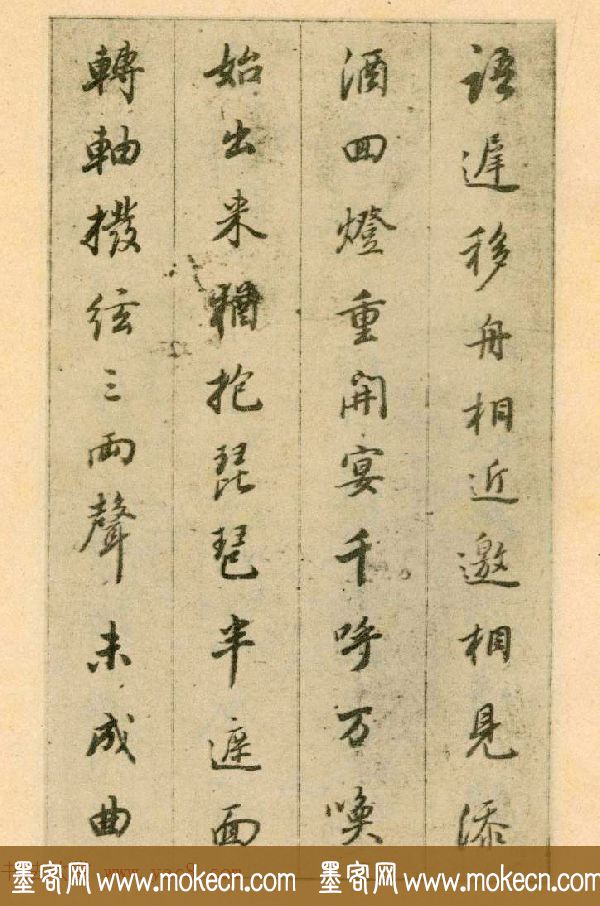 語遲移舟相近邀相見添
酒回燈重開宴千呼万喚
始出来猶抱琵琶半遮面
轉軸撥弦三兩聲未成曲
墨客网 www.mokecn.com 墨客网 www.mokecn.com